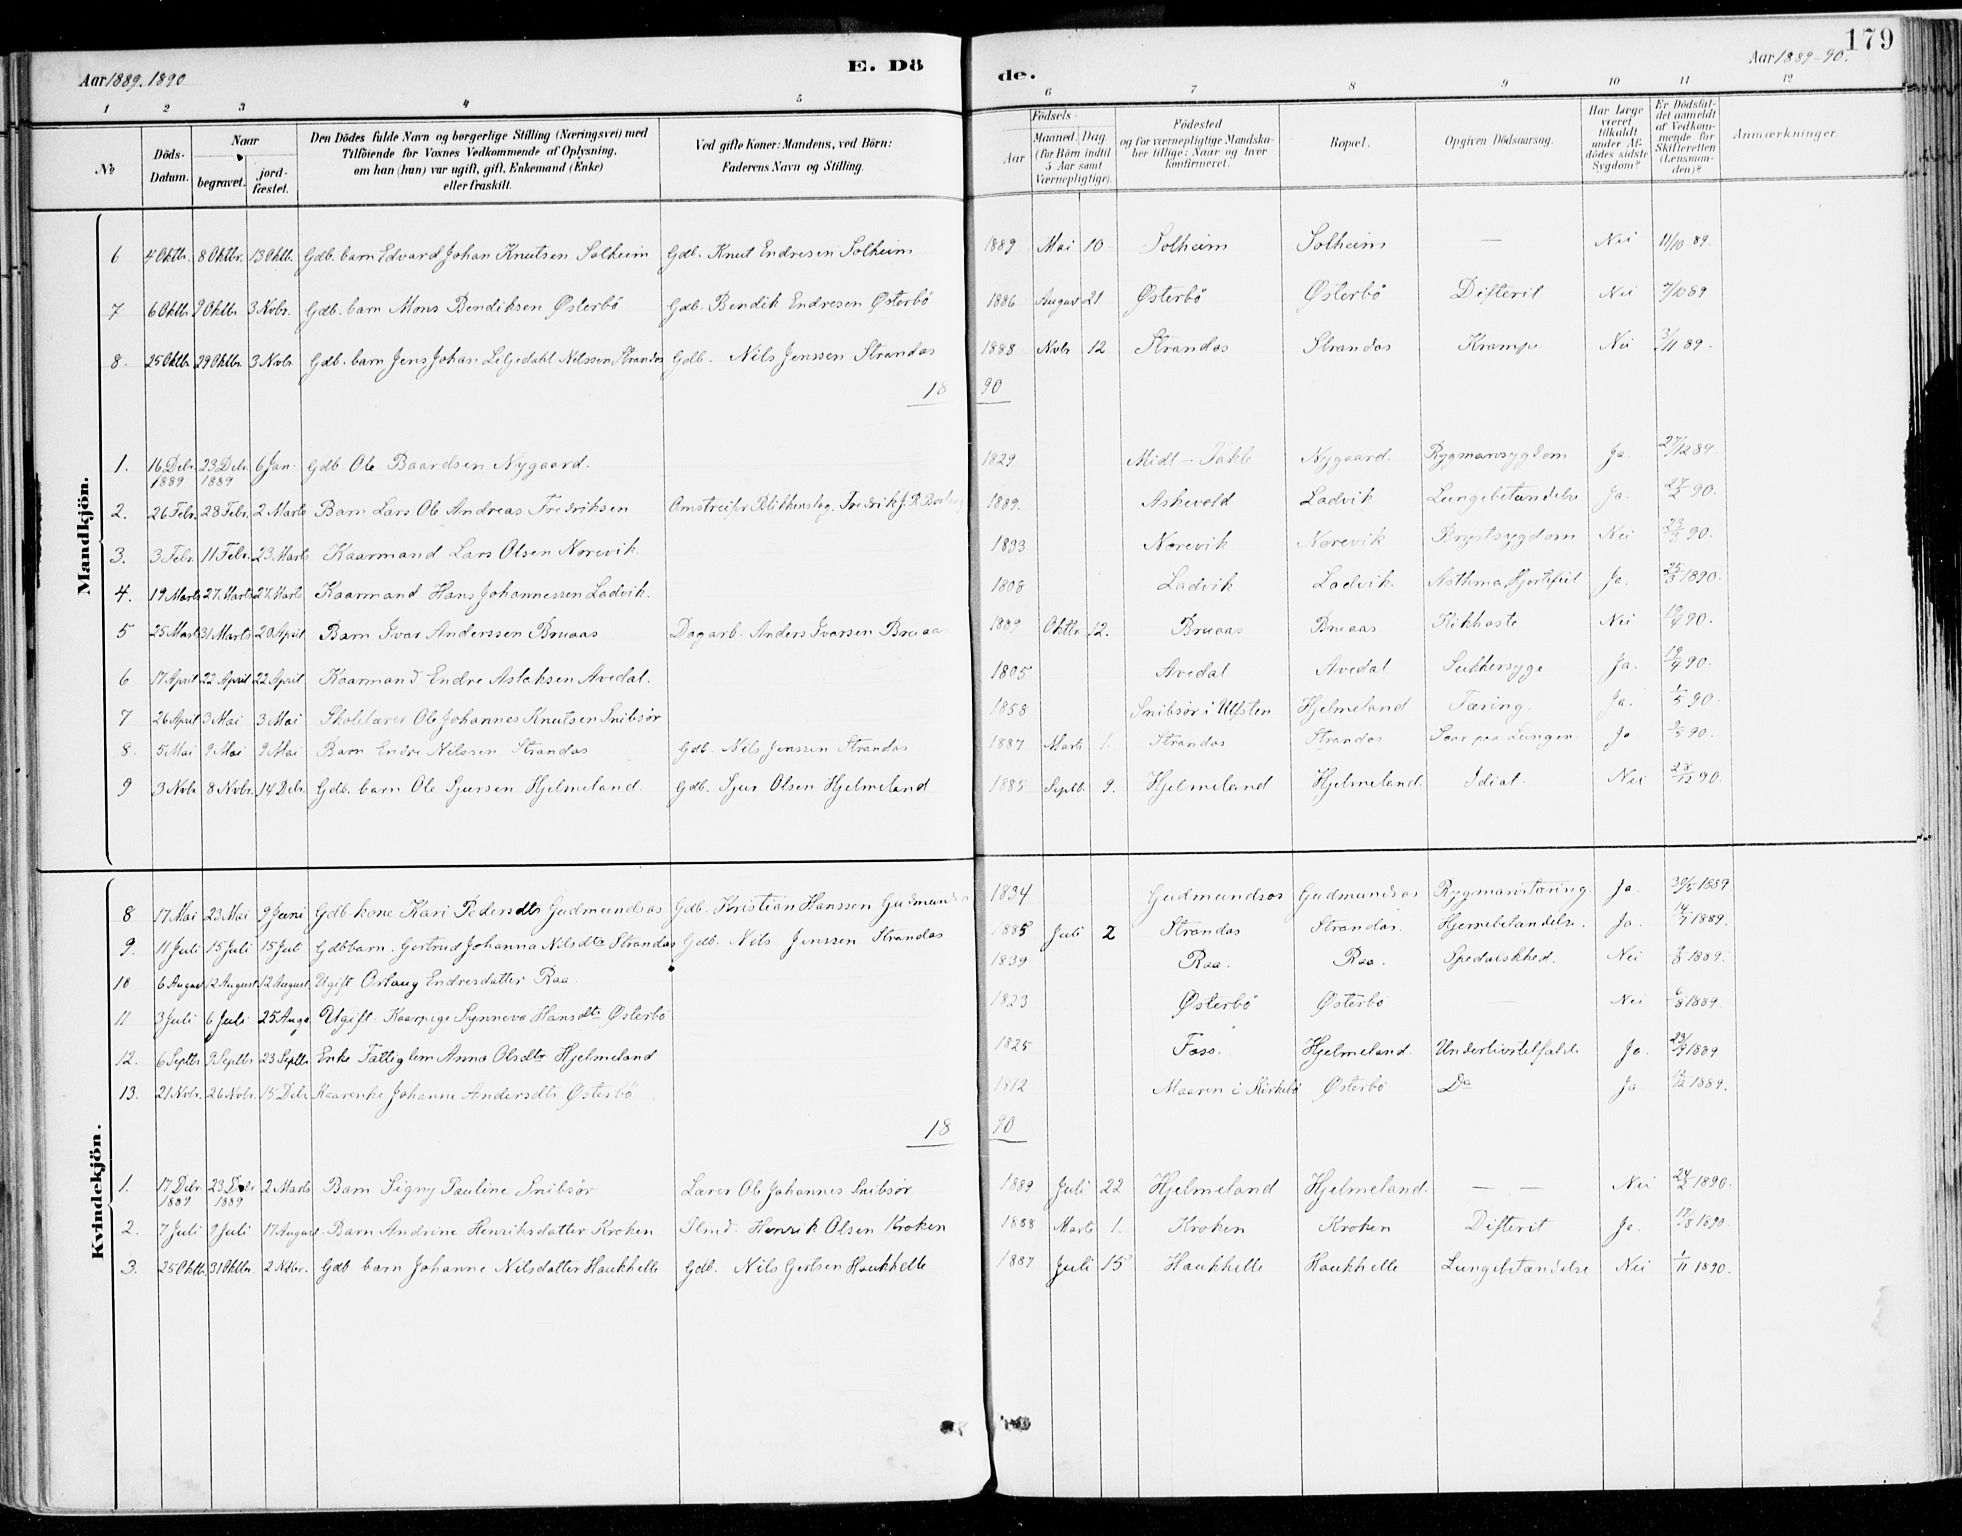 Aar 1889. 1890
E. Döde.
Aar 1889-90.
179
1 2 3 4 5 6 7 8 9 10 11 12
No
Döds-Datum.
Naar
begravet.
jordfæstet.
Den Dödes fulde Navn og borgerlige Stilling (Næringsvei) med
Tilföiende for Voxnes Vedkommende af Oplysning,
om han (hun) var ugift, gift, Enkemand (Enke)
eller fraskilt.
Ved gifte Koner: Mandens, ved Börn:
Faderens Navn og Stilling.
Födsels-
Aar
Maaned. Dag
(for Börn indtil
5 Aar samt
Værnepligtige).
Födested
og for værnepligtige Mandskaber tillige: Naar og hvor
konfirmeret.
Bopæl.
Opgiven Dödsaarsag.
Har Læge været tilkaldt under Afdödes sidste Sygdom?
Er Dödsfaldet anmeldt af Vedkommende for Skifteretten (Lensmanden)?
Anmærkninger.
Mandkjön.
6 4 Oktbr. 8 Oktbr. 13 Oktb. Gdb. barn Edvard Johan Knutsen Solheim Gdb. Knut Endresen Solheim 1889 Mai 10 Solheim Solheim — Nei 11/10 89.
7 6 Oktbr. 9 Oktbr. 3 Nvbr. Gdb. barn Mons Bendiksen Østerbö Gdb. Bendik Endresen Østerbö 1886 August 21 Østerbö Østerbö Difterit Nei 7/10 89
8. 25 Oktbr. 29 Oktbr. 3 Nvbr. Gdb. barn Jens Johan Liljedahl Nilssen Strandos Gdb. Nils Jenssen Strandos 1888 Nvbr 12 Strandos Strandos Krampe Nei 3/11 89.
18 90
1. 16 Debr. 1889 23 Debr. 1889 6 Jan. Gdb. Ole Baardsen Nygaard. 1829 Midt-Takle Nygaard. Rygmarvsygdom Ja. 27/12 89.
2. 26 Febr. 28 Febr. 2 Marts Barn Lars Ole Andreas Fredriksen Omstreifer Blikkenslag. Fredrik J. 1889. Askevold Ladvik Lungebetændelse Ja. 27/2 90.
3. 3 Febr. 11 Febr. 23 Marts Kaarmand Lars Olsen Norevik Norevik Norevik Brystsygdom Nei 23/3 90.
4. 19 Marts 27. Marts 27. Marts Kaarmand Hans Johannessen Ladvik. 1808 Ladvik Ladvik. Asthma, Hjertefeil Ja. 25/3 1890.
5 25 Marts 31 Marts 20 April Barn Ivar Anderssen Bruaas Dagarb. Anders Ivarsen Bruaa 1889 Oktbr 12. Bruaas Bruaas Kikhoste Nei 90.
6 17 April 22 April 22 April Kaarmand Endre Aslaksen Avedal. 1805 Avedal Avedal Sukkersyge Ja. 19/4 90.
7 26 April 3 Mai 3 Mai Skolelærer Ole Johannes Knutsen Snibsör 1858 Snibsör i Utsten Hjelmeland Tæring. Ja. 1/5 90.
8. 5 Mai 9 Mai 9 Mai Barn Endre Nilssen Strandos Gdb. Nils Jenssen Strandos 1887 Marts 1. Strandos Strandos Saar paa Lungen Ja 9/5 90.
9 3 Nvbr. 8 Nvbr. 14 Debr. Gdb. barn Ole Sjursen Hjelmeland. Gdb. Sjur Olsen Hjelmeland 1885 Septb. 9. Hjelmeland Hjelmeland. Idiot. Nei 28/12 90.
Kvindekjön.
8 17 Mai 23 Mai 9 Juni Gdb. kone Kari Pedersdtr Gudmundsos Gdb. Kristian Hanssen Gudmunds 1834 Gudmundsos Gudmundsos Rygmarvstæring. Ja. 1889
9. 11 Juli 15 Juli 15 Juli Gdb barn. Gertrud Johanna Nilsdtr Strandos Gdb. Nils Jenssen Strandos 1885 Juli 2 Strandos Strandos. Hjernebetændelse. Ja. 14/7 1889.
10 6 August 12 August 12 August Ugift Orlaug Endresdatter Raa 1839 Raa. Raa. Spedalskhed. Nei 1889.
11 3 Juli 6 Juli 25 Augs Ugift. Kaarpige Synneva Hansdtr Østerbö 1823 Østerbö Østerbö — Nei 6/8 1889.
12. 6 Septbr 9 Septbr. 23 Septbr. Enke Fattiglem Anna Olsdtr Hjelmeland 1825 Foss. Hjelmeland. Underlivstilfælde Ja. 23/9 1889
13. 21 Nvbr. 26 Nvbr. 15 Debr. Kaarenke Johanne Andersdtr Østerbö 1812 Maaren i Kirkebö Østerbö Do Ja 1889.
18 90
1. 17 Debr 1889 23 Debr 1889 2 Marts Barn Signy Pauline Snibsör Lærer Ole Johannes Snibsör 1889 Juli 22 Hjelmeland Hjelmeland. — — Nei 24/2 1890.
2. 7 Juli 9 Juli 17 August Barn Andrine Henriksdatter Kroken Henrik Olsen Kroken 1888 Marts 1. Kroken Kroken Difterit Ja. 17/8 1890.
3. 25 Oktb. 31 Oktbr. 2 Nvbr. Gdb barn Johanne Nilsdatter Haukhelle Gdb. Nils Gertsen Haukhelle 1887 Juli 15 Haukhelle Haukhelle Lungebetændelse Nei 1/11 1890.